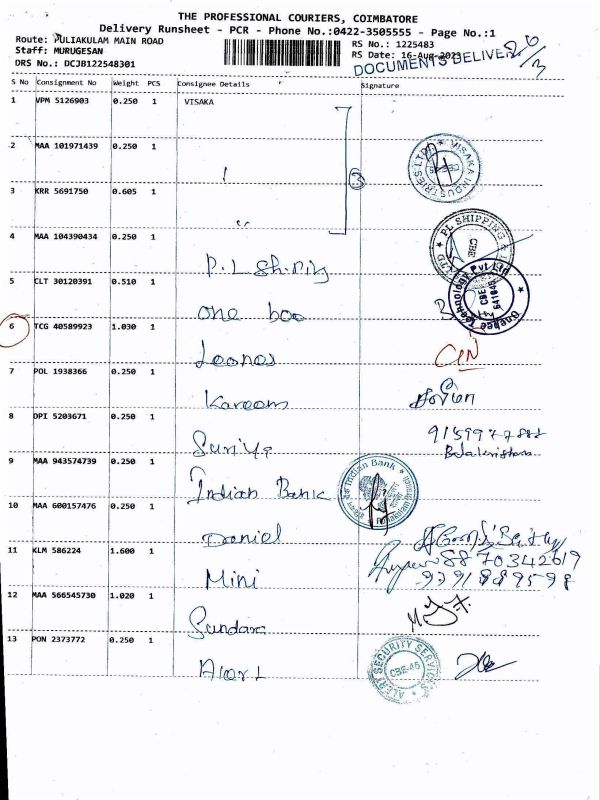 THE PROFESSIONAL COURIERS, COIMBATORE
Delivery Runsheet - PCR - Phone No.:0422-3505555 - Page No.:1
Route: PULIAKULAM MAIN ROAD
Staff: MURUGESAN
DRS No.: DCJB122548301
RS No.: 1225483
RS Date: 16-Aug-2023
DOCUMENTS DELIVER
S No Consignment No Weight PCS Consignee Details Signature
1 VPM 5126903 0.250 1 VISAKA
2 MAA 101971439 0.250 1
VISAKA INDUSTRIES LTD
3 KRR 5691750 0.605 1
3
4 MAA 104390434 0.250 1
P.L Shiping
PL SHIPPING &
CBE
5 CLT 30120391 0.510 1
one boo
Technology Pvt Ltd
CBE
641045
6 TCG 40589923 1.030 1
Leones
CIN
7 POL 1938366 0.250 1
Kareem
8 DPI 5203671 0.250 1
Suriya
9 MAA 943574739 0.250 1
Indian Bank
Indian Bank
10 MAA 600157476 0.250 1
Daniel
11 KLM 586224 1.600 1
Mini
8870342619
12 MAA 566545730 1.020 1
Sundara
13 PON 2373772 0.250 1
Alert
ALERT SECURITY SERVICES
CBE-45